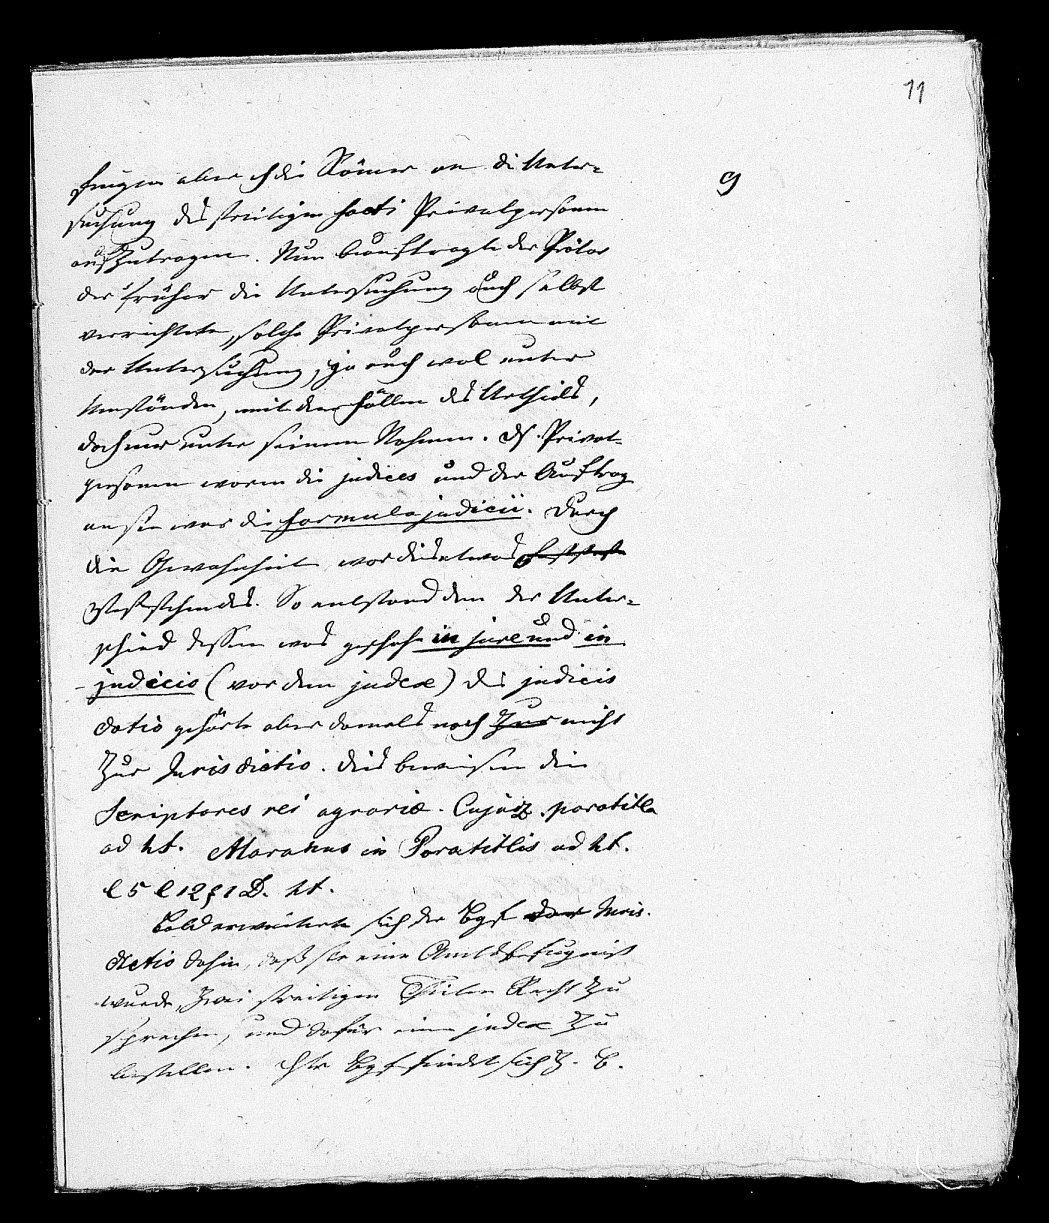 11
9
fingen aber die Römer an die Unter-
suchung des streitigen facti Privatpersonen
aufzutragen. Nun beauftragte der Prätor
der früher die Untersuchung auch selbst
verrichtete, solche Privatpersonen mit
der Untersuchung, ja auch wol unter
Umständen, mit dem Fällen des Urtheils,
doch nur unter seinem Nahmen. Privat-
personen waren die judices und der Auftrag
an sie war die formula judicii. Durch
die Gewohnheit war dies etwas
feststehendes. So entstand denn der Unter-
schied dessen was geschah in jure und in
judicio (vor dem judex) des judicis
datio gehörte aber damals noch zur nicht
zur Jurisdictio. Dies beweisen die
Scriptores rei agrariæ. Cujaz. paratitla
ad ht. Maranus in Paratitlis ad ht.
l 5 l 12 § 1 D. ht.
Bald erweiterte sich der Bgf der Juris-
dictio dahin, daß sie eine Amtsbefugniß
wurde, zwei streitigen Theilen Recht zu
sprechen, und dafür einen judex zu
bestellen. Bgf findet sich z. B.